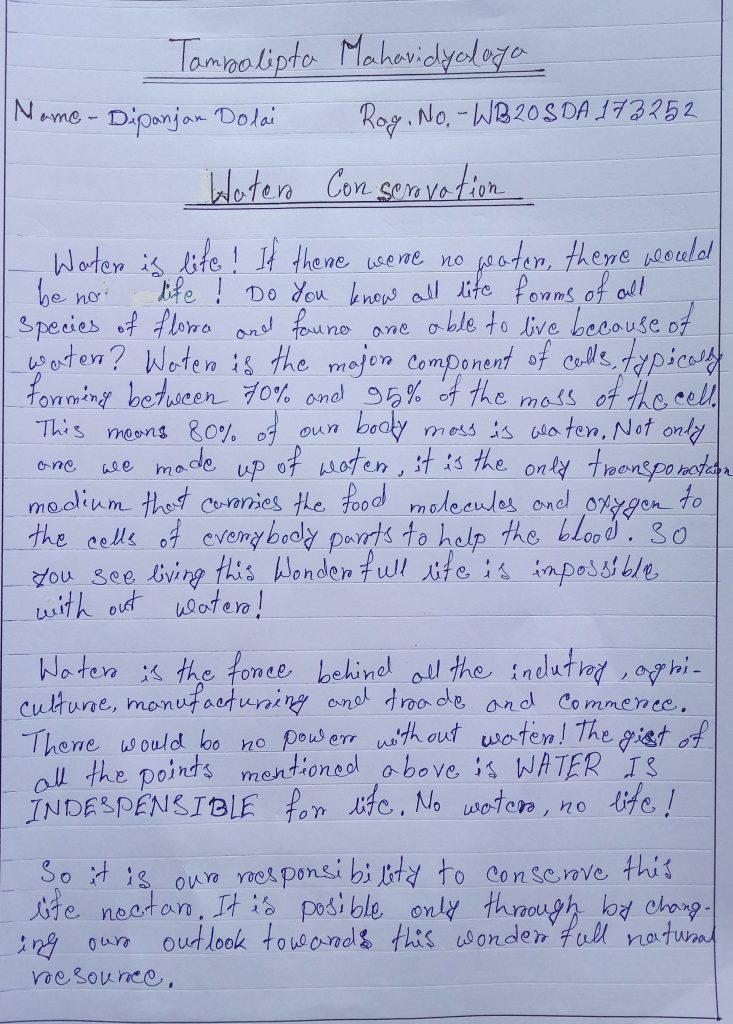 Tamralipta Mahavidyalaya
Name - Dipanjan Dolai Reg. No. - WB20SDA173252
Water Conservation
Water is life! If there were no water, there would
be no life! Do you know all life forms of all
species of flora and fauna are able to live because of
water? Water is the major component of cells, typically
forming between 70% and 95% of the mass of the cell.
This means 80% of our body mass is water. Not only
are we made up of water, it is the only transportation
medium that carries the food molecules and oxygen to
the cells of everybody parts to help the blood. So
you see living this Wonderfull life is impossible
with out water!
Water is the force behind all the indutry, agri-
culture, manufacturing and trade and commerce.
There would be no power without water! The gist of
all the points mentioned above is WATER IS
INDESPENSIBLE for life. No water, no life!
So it is our responsibility to conserve this
life nectar. It is posible only through by chang-
ing our outlook towards this wonderfull natural
resource.